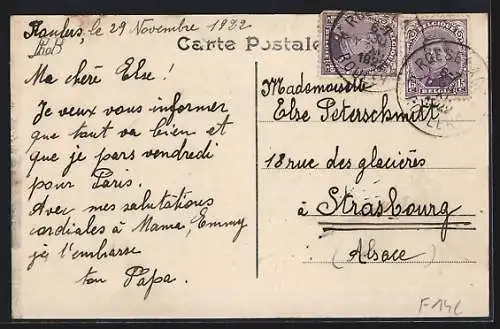 Roulers, le 29 Novembre 1922
Carte Postale
Ma cherè Else!
Je veux vous informer
que tout va bien et
que je pars vendredi
pour Paris.
Avec mes salutations
cordiales à Mama, Emmy
je t'embrasse
ton Papa.
Mademoiselle
Else Peterschmitt
18 rue des glacières
à Strasbourg
(Alsace)
BELGIQUE
ROESELARE
F14c